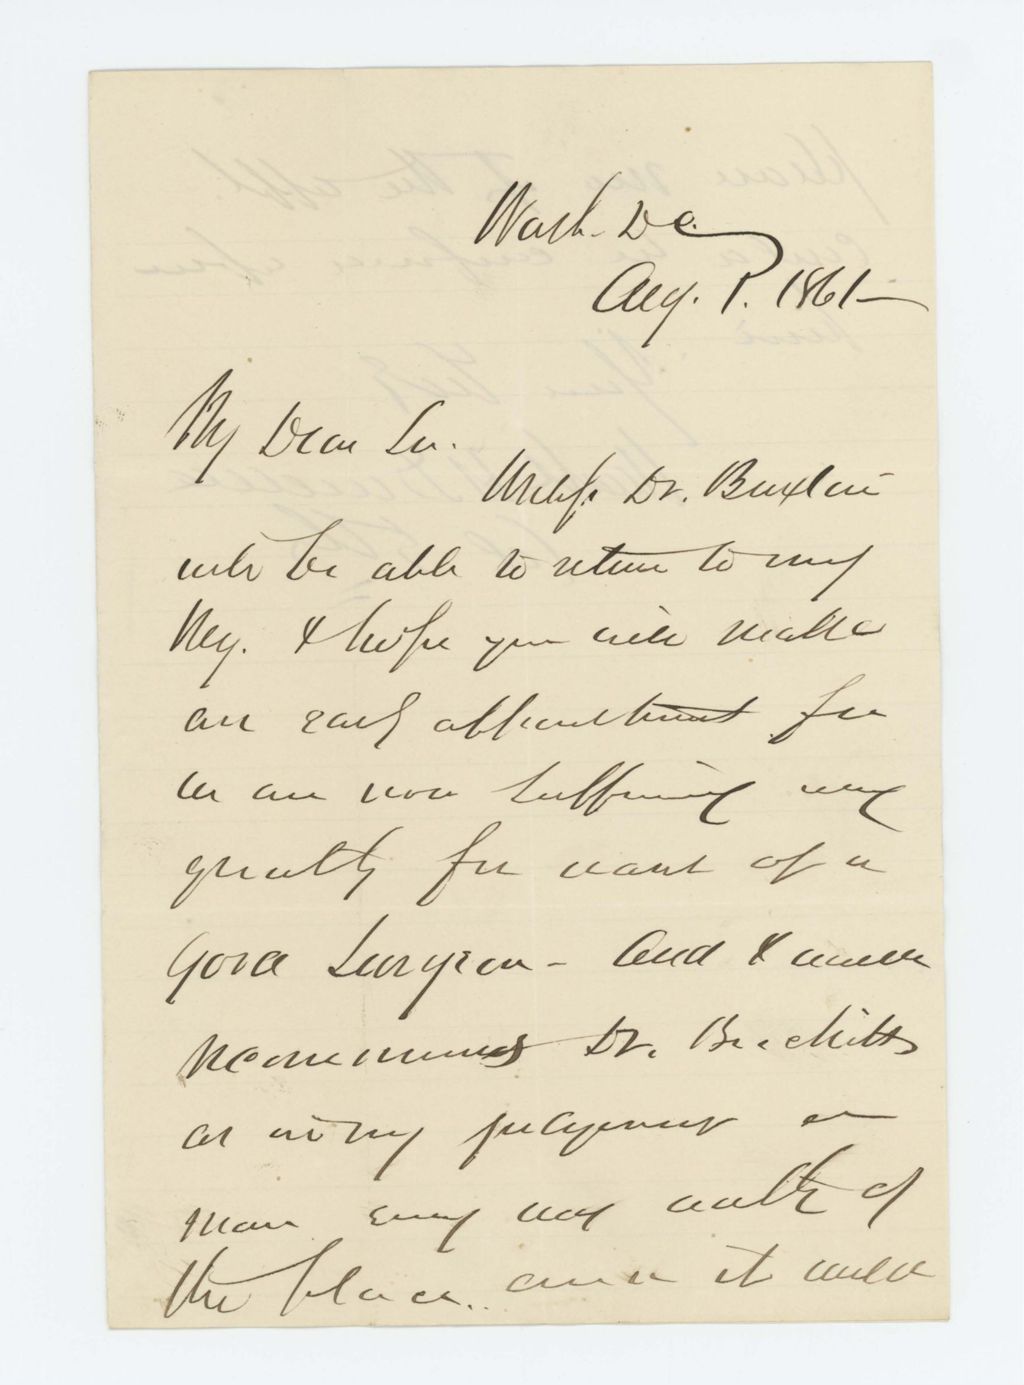 Wash. D C.
Aug. 1. 1861—
My Dear Sir.
Unless Dr. Buxton
will be able to return to my
Reg. I hope you will make
an early appointment for
we are now suffering very
greatly for want of a
Good Surgeon – And I would
recommend Dr.
as in my judgement a
man every way worthy of
the place. and it would